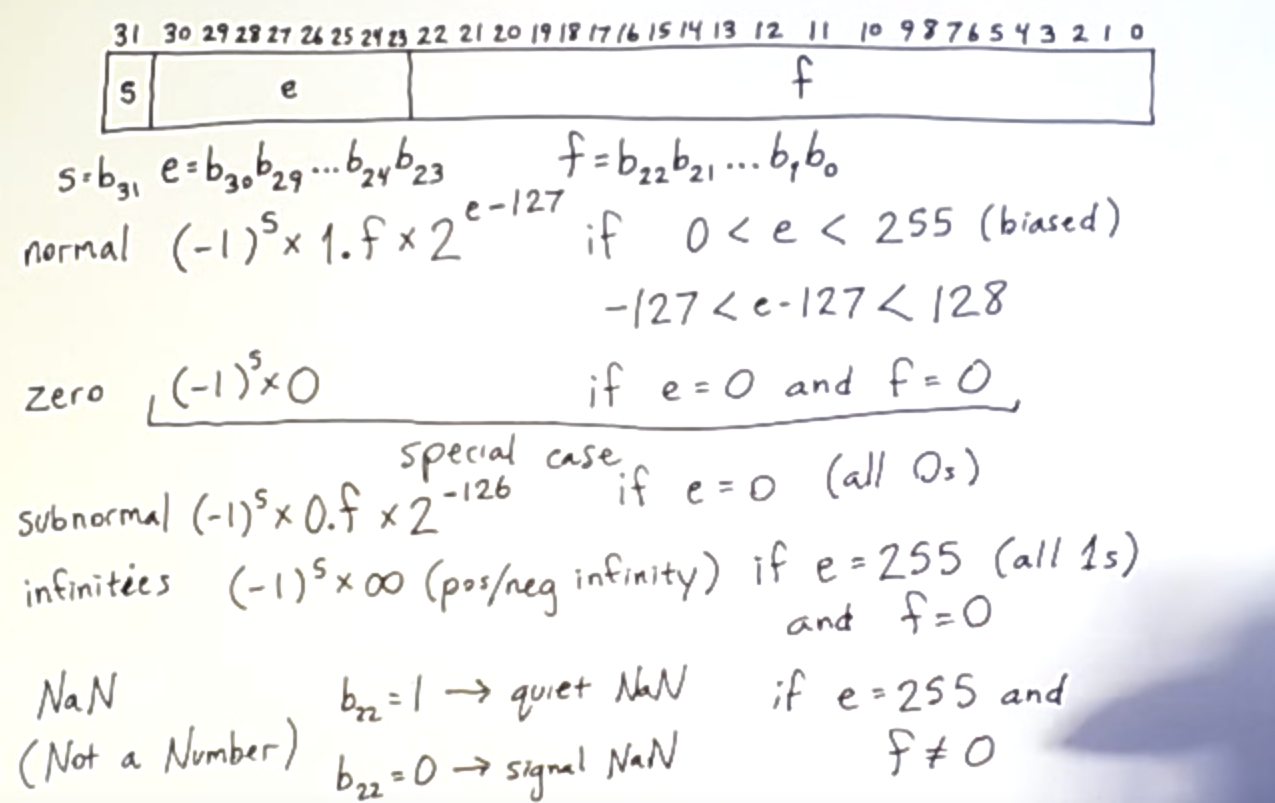 31 30 29 28 27 26 25 24 23 22 21 20 19 18 17 16 15 14 13 12 11 10 9 8 7 6 5 4 3 2 1 0
s e f
s=b₃₁ e=b₃₀b₂₉...b₂₄b₂₃ f=b₂₂b₂₁...b₁b₀
normal (-1)ˢ× 1.f × 2ᵉ⁻¹²⁷ if 0 < e < 255 (biased)
-127 < e-127 < 128
zero (-1)ˢ×0 if e=0 and f=0
special case
subnormal (-1)ˢ× 0.f × 2⁻¹²⁶ if e=0 (all 0s)
infinities (-1)ˢ×∞ (pos/neg infinity) if e=255 (all 1s)
and f=0
NaN b₂₂=1 → quiet NaN if e=255 and
(Not a Number) b₂₂=0 → signal NaN f≠0